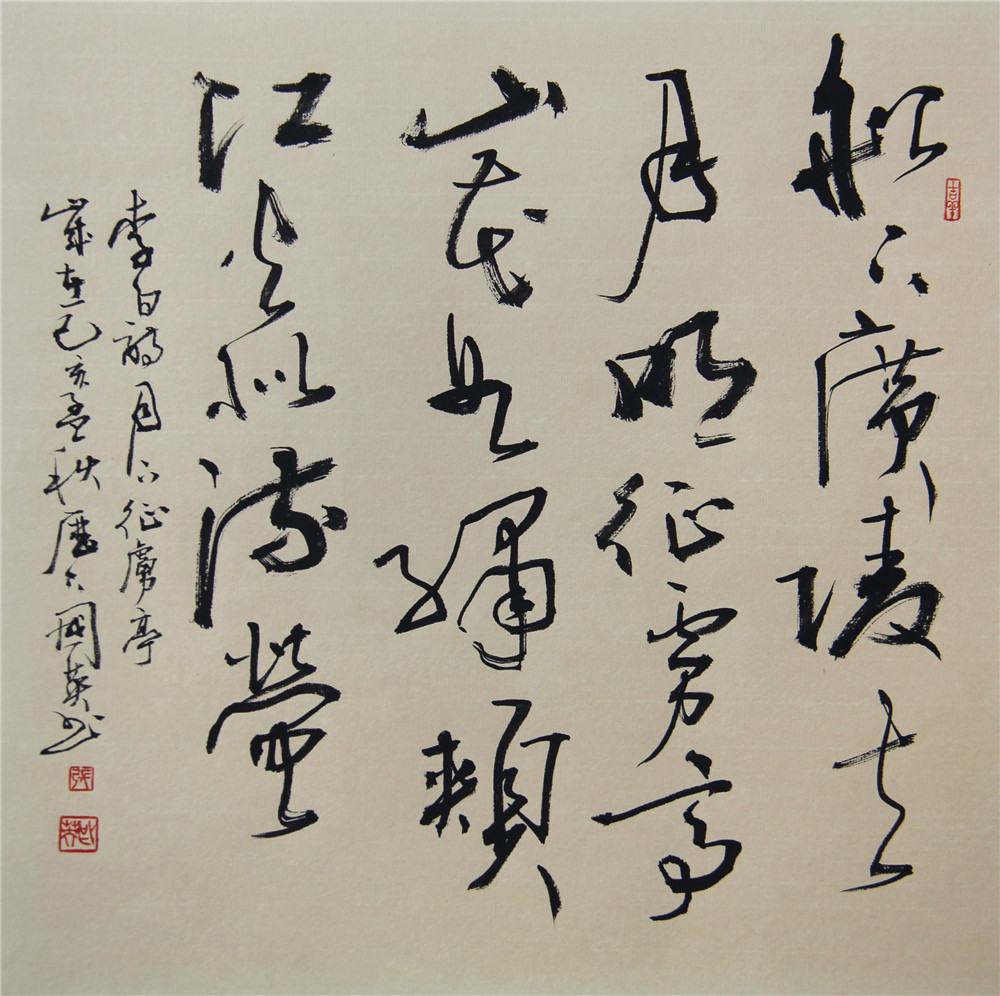 船下廣陵去
月明征虜亭
山花如繡頰
江火似流螢
李白詩月下征虜亭
歲在己亥孟秋歷下國英
張